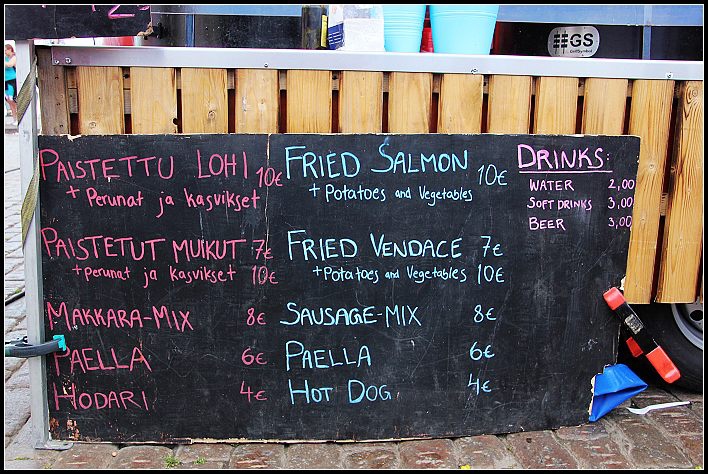 GS
PAISTETTU LOHI 10€
+ Perunat ja kasvikset
PAISTETUT MUIKUT 7€
+ perunat ja kasvikset 10€
MAKKARA-MIX 8€
PAELLA 6€
HODARI 4€
FRIED SALMON 10€
+ POTATOES AND VEGETABLES
FRIED VENDACE 7€
+ POTATOES AND VEGETABLES 10€
SAUSAGE-MIX 8€
PAELLA 6€
HOT DOG 4€
DRINKS:
WATER 2,00
SOFT DRINKS 3,00
BEER 3,00